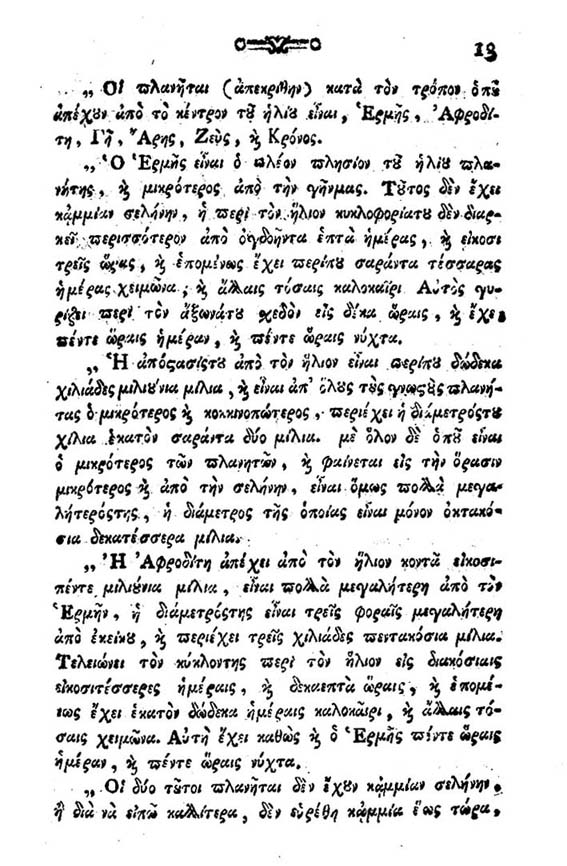 13
„ Οἱ πλανῆται (ἀπεκρίθην) κατὰ τὸν τρόπον ὁπȣ͂
ἀπέχȣν ἀπὸ τὸ κέντρον τȣ͂ ἡλίȣ εἶναι, Ἑρμῆς, Ἀφροδί-
τη, Γῆ, Ἄρης, Ζεὺς, ϗ Κρόνος.
„ Ὁ Ἑρμῆς εἶναι ὁ πλέον πλησίον τȣ͂ ἡλίȣ πλα-
νήτης, ϗ μικρότερος ἀπὸ τὴν γῆνμας. Τȣ͂τος δὲν ἔχει
κᾀμμίαν σελήνην, ἡ περὶ τὸν ἥλιον κυκλοφορίατȣ δὲν διαρ-
κεῖ περισσότερον ἀπὸ ὀγδοῆντα ἑπτὰ ἡμέρας, ϗ εἴκοσι
τρεῖς ὥρας, ϗ ἑπομένως ἔχει περίπȣ σαράντα τέσσαρας
ἡμέρας χειμῶνα, ϗ ἄλλαις τόσαις καλοκαῖρι. Αὐτὸς γυ-
ρίζει περὶ τὸν ἄξωνάτȣ σχεδὸν εἰς δέκα ὥραις, ϗ ἔχει
πέντε ὥραις ἡμέραν, ϗ πέντε ὥραις νύχτα.
„ Ἡ ἀπόςασίςτȣ ἀπὸ τὸν ἥλιον εἶναι περίπȣ δώδεκα
χιλιάδες μιλιȣ́νια μίλια, ϗ εἶναι ἀπ' ὅλȣς τȣ̀ς γνωςȣ̀ς πλανή-
τας ὁ μικρότερος ϗ κοκκινοπώτερος, περιέχει ἡ διάμετρόςτȣ
χίλια ἑκατὸν σαράντα δύο μίλια. μὲ ὅλον δὲ ὁπȣ͂ εἶναι
ὁ μικρότερος τῶν πλανητῶν, ϗ φαίνεται εἰς τὴν ὅρασιν
μικρότερος ϗ ἀπὸ τὴν σελήνην, εἶναι ὅμως πολλὰ μεγα-
λήτερόςτης, ἡ διάμετρος τῆς ὁποίας εἶναι μόνον ὀκτακό-
σια δεκατέσσερα μίλια.
„ Ἡ Ἀφροδίτη ἀπέχει ἀπὸ τὸν ἥλιον κοντὰ εἰκοσι-
πέντε μιλιȣ́νια μίλια, εἶναι πολλὰ μεγαλήτερη ἀπὸ τὸν
Ἑρμῆν, ἡ διάμετρόςτης εἶναι τρεῖς φοραῖς μεγαλήτερη
ἀπὸ ἐκείνȣ, ϗ περιέχει τρεῖς χιλιάδες πεντακόσια μίλια.
Τελειώνει τὸν κύκλοντης περὶ τὸν ἥλιον εἰς διακόσιαις
εἰκοσιτέσσερες ἡμέραις, ϗ δεκαεπτὰ ὥραις, ϗ ἑπομέ-
νως ἔχει ἑκατὸν δώδεκα ἡμέραις καλοκαῖρι, ϗ ἄλλαις τό-
σαις χειμῶνα. Αὐτὴ ἔχει καθὼς ϗ ὁ Ἑρμῆς πέντε ὥραις
ἡμέραν, ϗ πέντε ὥραις νύχτα.
„ Οἱ δύο τȣ͂τοι πλανῆται δὲν ἔχȣν κᾀμμίαν σελήνην,
ἢ διὰ νὰ εἰπῶ καλλίτερα, δὲν εὑρέθη κᾀμμία ἕως τώρα,